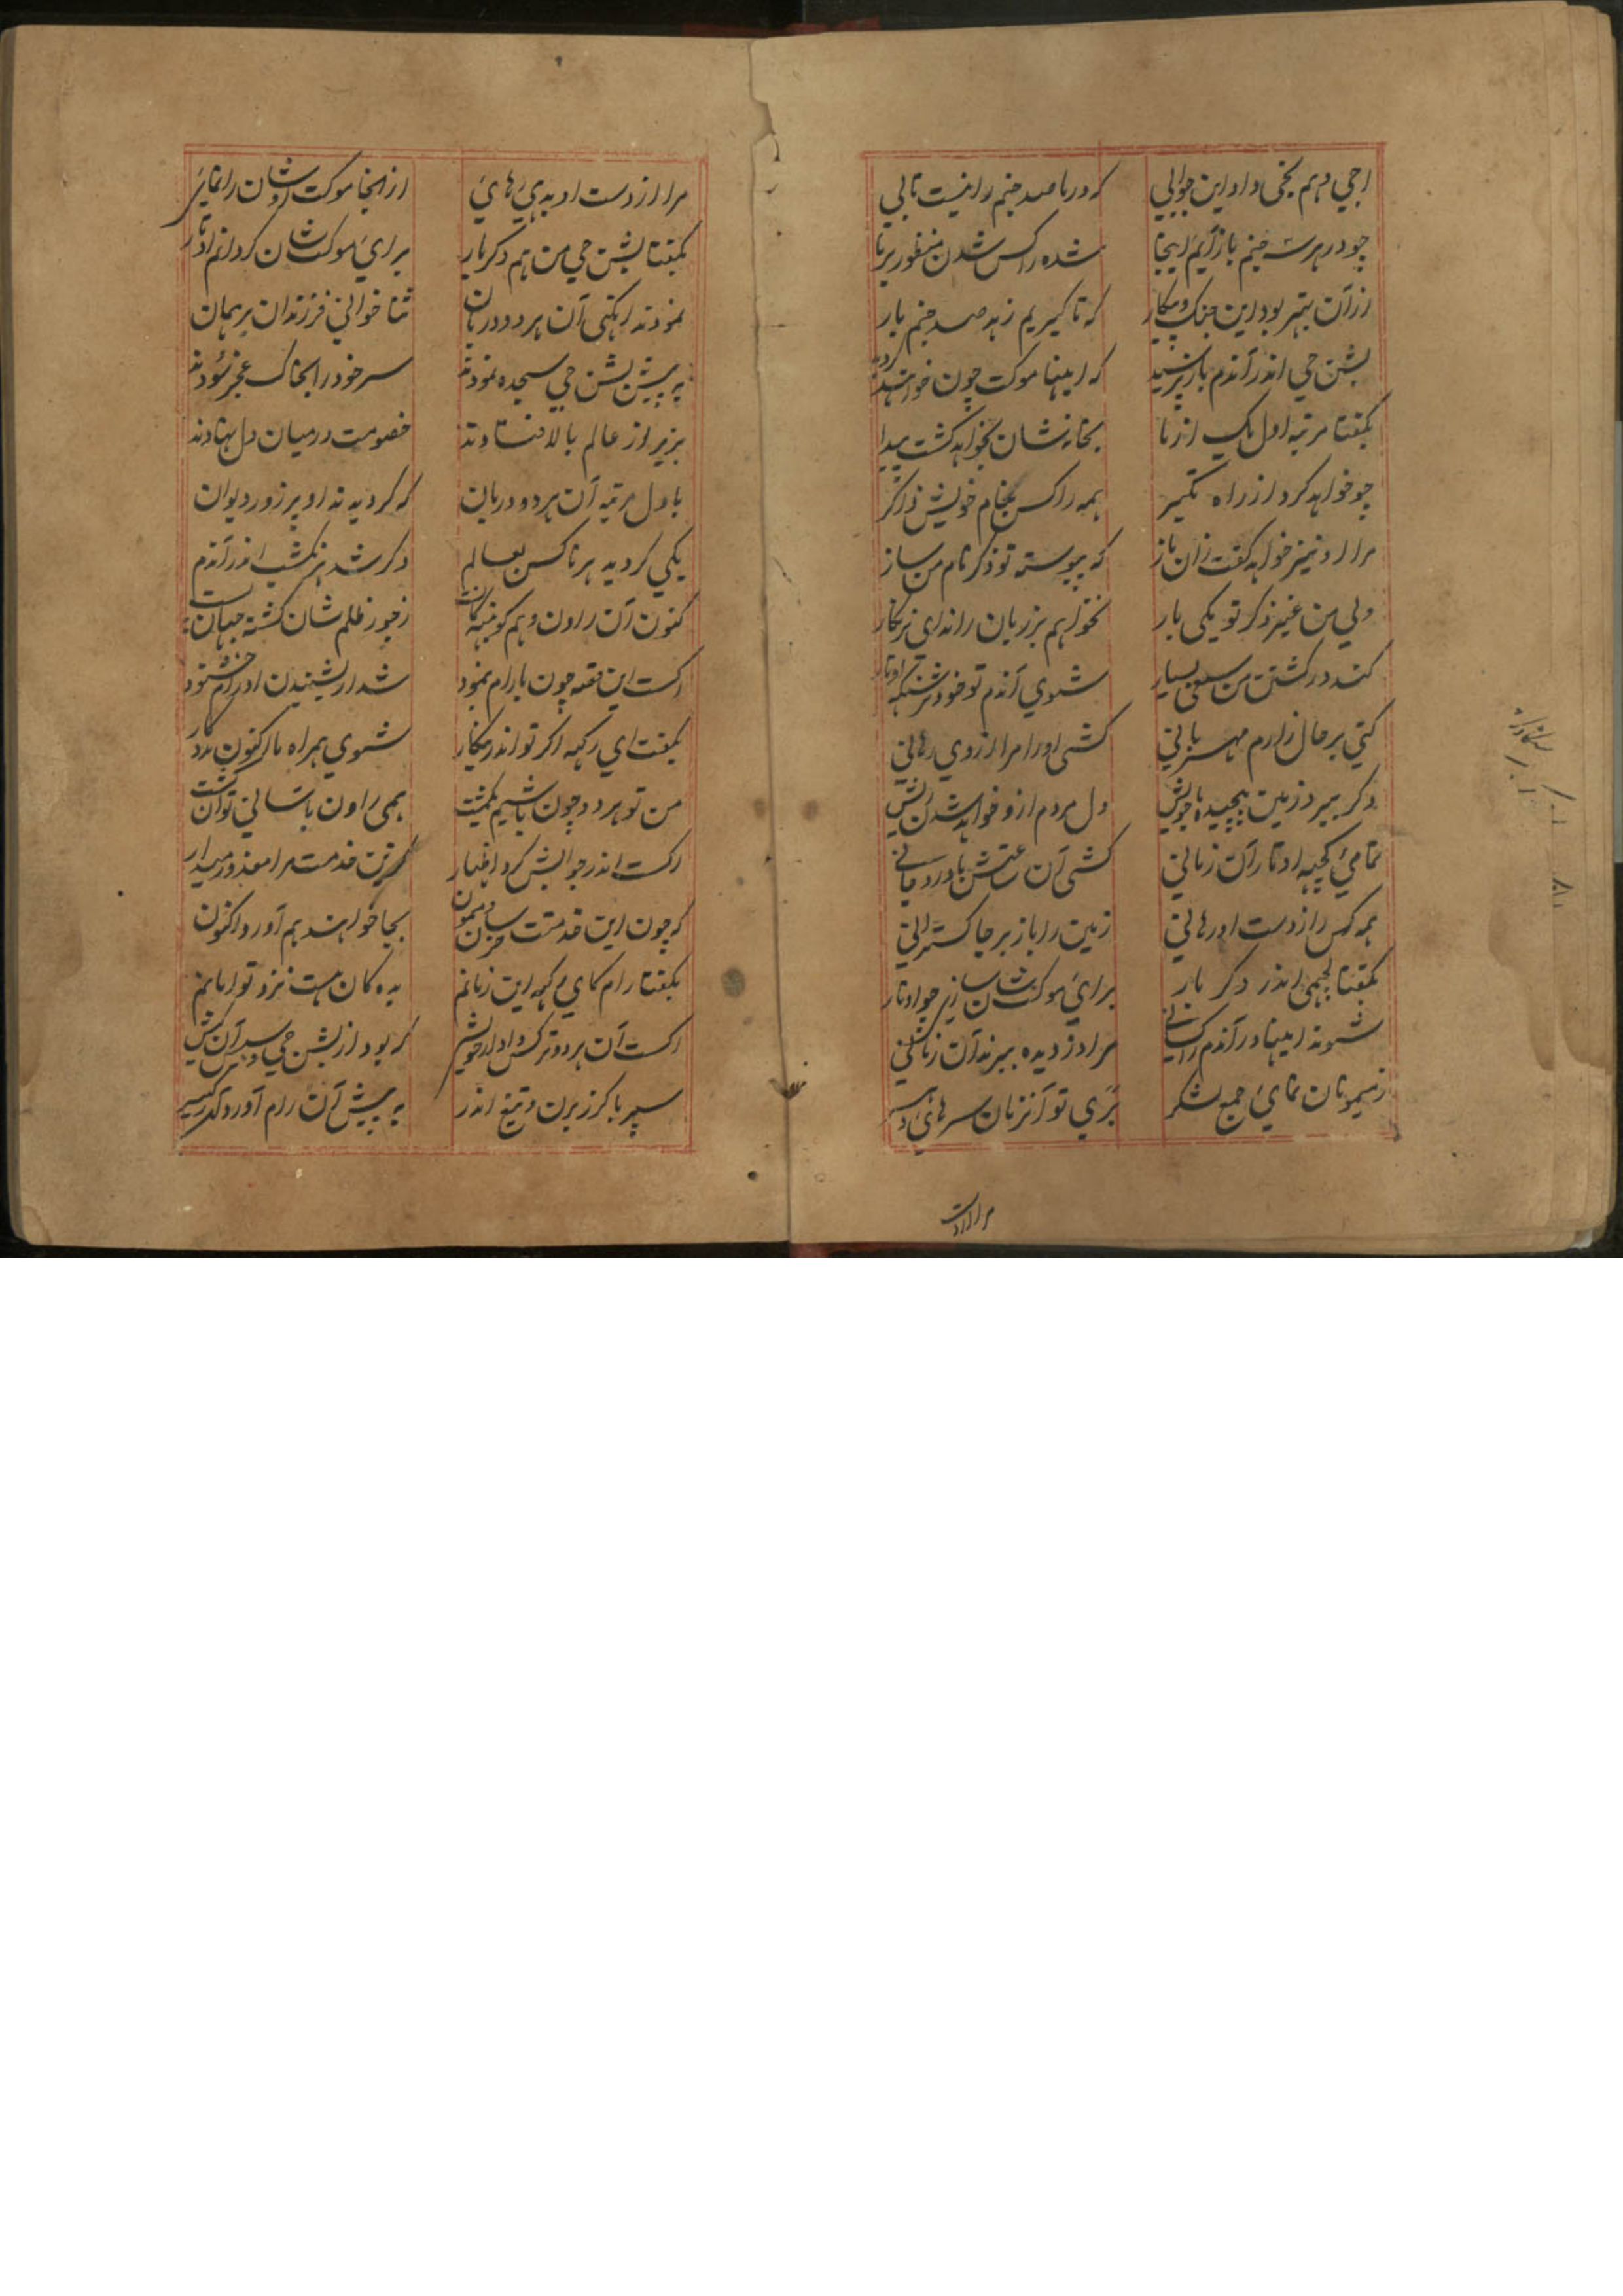 اجی وہم بجی داد این جوابی که درما صد جنم را نیست تابی
چو در هر سه جنم باز آیم اینجا شده راکس شدن منظور بر ما
از آن بهتر بود این جنگ و پیکار که تا گیریم زهد صد جنم بار
بشن جی اندر آندم باز پرسید که اینها موکت چون خواهند
بگفتا مرتبه اول یک از ما بخانه شان بخواهد گشت پیدا
چو خواهد کرد از راه تکبر همه را کس بنام خویش ذاکر
مرا او نیز خواهد گفت زان باز که پیوسته تو ذکر نام من ساز
ولی من غیر ذکر تو یکی بار نخواهم بر زبان راند ای نرنکار
کند در کشتن من سعی بسیار شوی آندم تو خود نرسنگه اوتار
کنی بر حال زارم مهربانی کشی او را مرا از وی رهانی
دگر ببرد زمین پیچیده با خویش دل مردم ازو خواهد شدن ریش
تمامی کچهه اوتار آن زمانی کشی آن
همه کس را ز دست او رهانی زمین را باز بر جا گسترانی
بگفتا لچهمی اندر دگر بار برای موکت شان سازیم چو اوتار
شوند اینها در آندم راکسانی مرا دزدیده ببرند آن زمانی
ز میمونان نمائی جمع لشکر بری تو آنزمان سرهای
مرا از دست
مرا از دست او بدهی رهائی از اینجا موکت اوشان را نمائی
بگفتا بشن جی من هم دگر بار برای موکت شان گردانم اوتار
نمودند آنگهی آن هر دو دربان ثنا خوانی فرزندان برهمان
به پیش بشن جی سجده نمودند سر خود را بخاک عجز سودند
بزیر از عالم بالا فتادند خصومت درمیان دل نهادند
باول مرتبه آن هر دو دربان که گردیدند او پرزور دیوان
یکی گردید هرناکس بعالم دگر شد هرنکشب اندر آندم
کنون آن راون و هم کونبهه ز جور ظلم شان گشته جهان
اگست این قصه چون با رام نمود شد از بشنیدن او رام خشنود
بگفت ای رکهه اگر تو اندر پیکار شوی همراه ما اکنون مددگار
من تو هر دو چون باشیم یکمشت همی راون باسانی توان کشت
اگست اندر جوابش کرد اظهار کزین خدمت مرا معذور میدار
که چون این خدمتت خرس و میمون بجا خواهند هم آورد اکنون
بگفتا رام کای رکهه این زمانم بده کان هست نزد تو امانم
اگست آن هر دو ترکس داد از خویش که بود از بشن جی و سپر آن کیش
سپر با گرز برن و تیغ اندر به پیش آن رام آورد یکسر